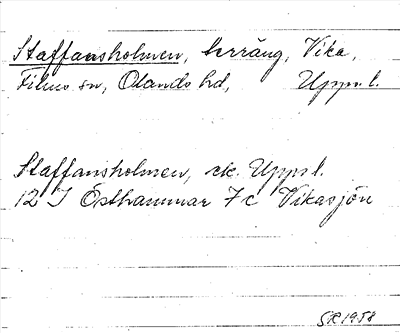 Staffansholmen, terräng, Vika,
Films sn, Olands hd, Upps. l.
Staffansholmen, ek. Upps. l.
12 I Östhammar 7c Vikasjön
GR 1958